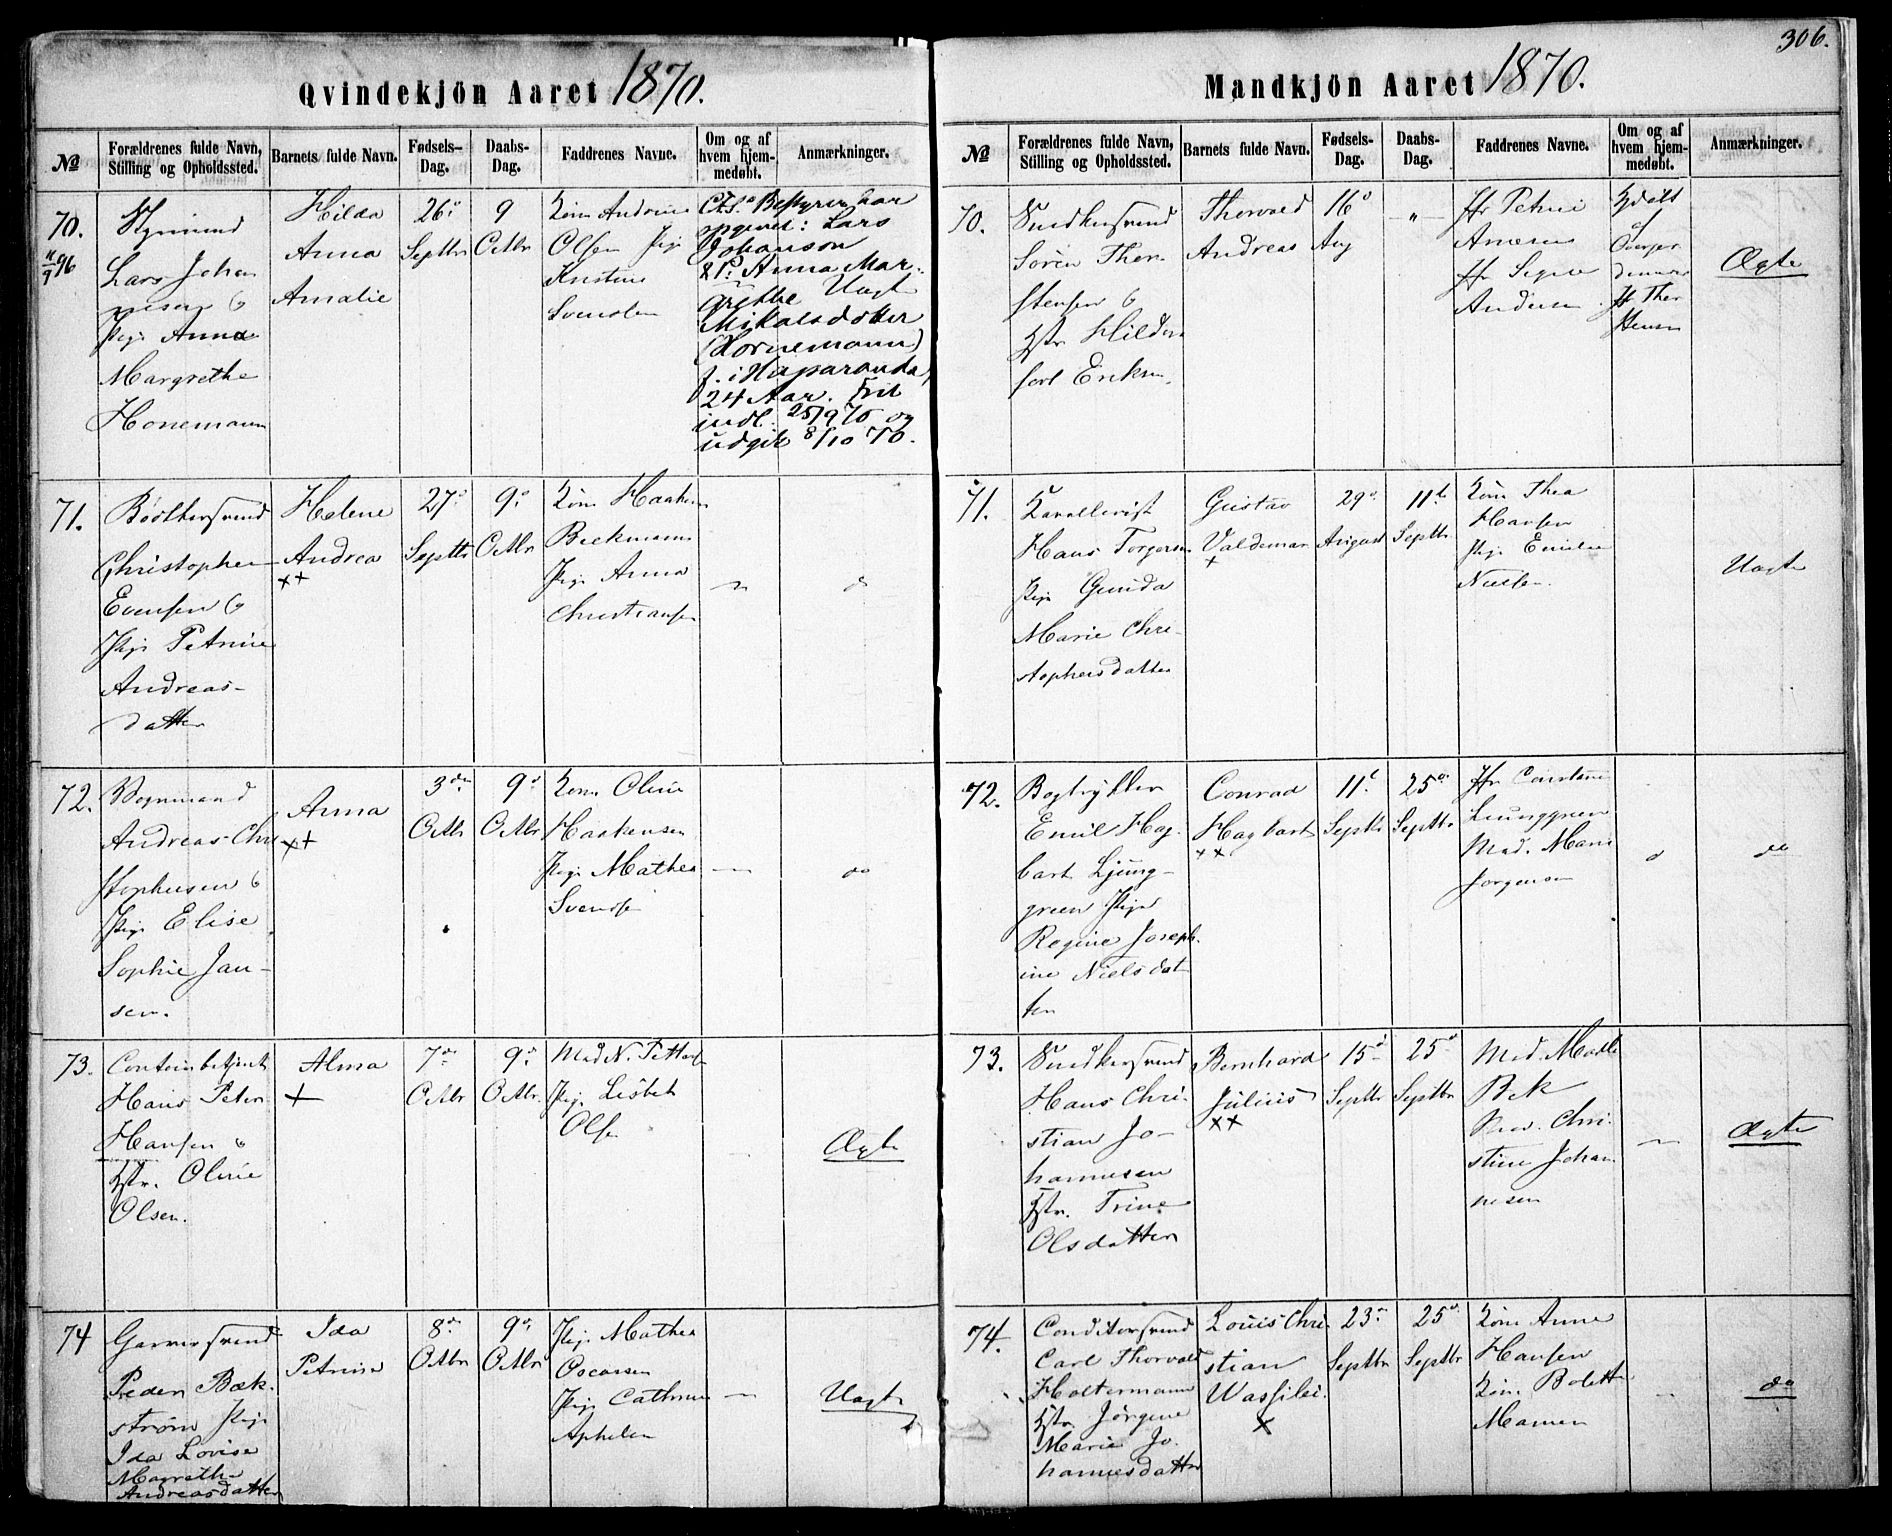 306.
Qvindekjön Aaret 1870.
№
Forældrenes fulde Navn,
Stilling og Opholdssted.
Barnets fulde Navn.
Fødsels-
Dag.
Daabs-
Dag.
Faddrenes Navne.
Om og af
hvem hjem-
medøbt.
Anmærkninger.
70.
11/9 96
Styrmand
Lars Johan
nesen &
Pige Anna
Margrethe
Honemann
Hilda
Anna
Amalie
26
Septbr
9
Octbr
Kone Andrine
Olsen Pige
Kristine
Svendsen
Bestyren har
opgivet: Lars
Johanson
& P. Anna Mar-
grethe Uægte
Mikalsdotter
(Hornemann)
f. i Haparanda,
24 Aar.
indl. 25/9 70 og
udgik 8/10 70.
71.
Bødkersvend
Christopher
Evensen &
Pige Petrine
Andreas-
datter
Helene
Andrea
××
27
Septbr
9
Octbr
Kone Haaken
Beckmann
Pige Anna
Christiansen
72.
Vognmand
Andreas Chri
stophersen &
Pige Elise
Sophie Jan-
sen.
Anna
××
3
Octbr
9
Octbr
Kone Oline
Haakensen
Pige Mathea
Svendsen
do
73.
Hans Peter
Hansen &
Hstr. Oline
Olsen.
Alma
×
7
Octbr
9
Octbr.
Mad N. Petters
Pige Lisbet
Olsen
Ægte
74
Garversvend
Peder Bæk-
strøm Pige
Ida Lovise
Margrethe
Andreasdatter
Ida
Petrine
8
Octbr
9
Octbr
Pige Mathea
Oscarsen
Pige Cathrine
Uægte
Mandkjön Aaret 1870.
№
Forældrenes fulde Navn,
Stilling og Opholdssted.
Barnets fulde Navn.
Fødsels-
Dag.
Daabs-
Dag.
Faddrenes Navne.
Om og af
hvem hjem-
medøbt.
Anmærkninger.
70.
Snedkersvend
Sören Thor
stensen &
Hstr Hilde
Eriksen.
Thorvald
Andreas
16
Aug
"
Fr Petrine
Fr Signe
Andersen
Hjdøbt
Ægte
71.
Karallerist
Hans Torgersen
Pige Gunda
Marie Chri-
stophersdatter
Gustav
Valdemar
×
29
August
11
Septbr
Kone Thea
Hansen
Pige Emilie
Nielsen
Uægte
72.
Bogtrykker
Emil Hag-
bart Ljung-
green Pige
Regine Joseph
ine Nielsdat
ter
Conrad
Hagbart
××
11
Septbr
25
Septbr
Fr Constance
Ljunggreen
Mad. Marie
Jorgensen
do
73.
Snedkersvend
Hans Chri-
stian Jo-
hannesen
Hstr. Trine
Olsdatter
Bernhard
Julius
××
15
Septbr
25
Septbr
Mad. Mathi
Bek
Mad. Chri-
stine Johan
nesen
Ægte
74.
Conditorsvend
Carl Thorvald
Holtermann
Hstr. Jörgine
Marie Jo-
hannesdatter
Louis Chri-
stian
Wassilei.
×
23
Septbr
25
Septbr
Kone Anne
Hansen
Kone Bolette
Mamen
do